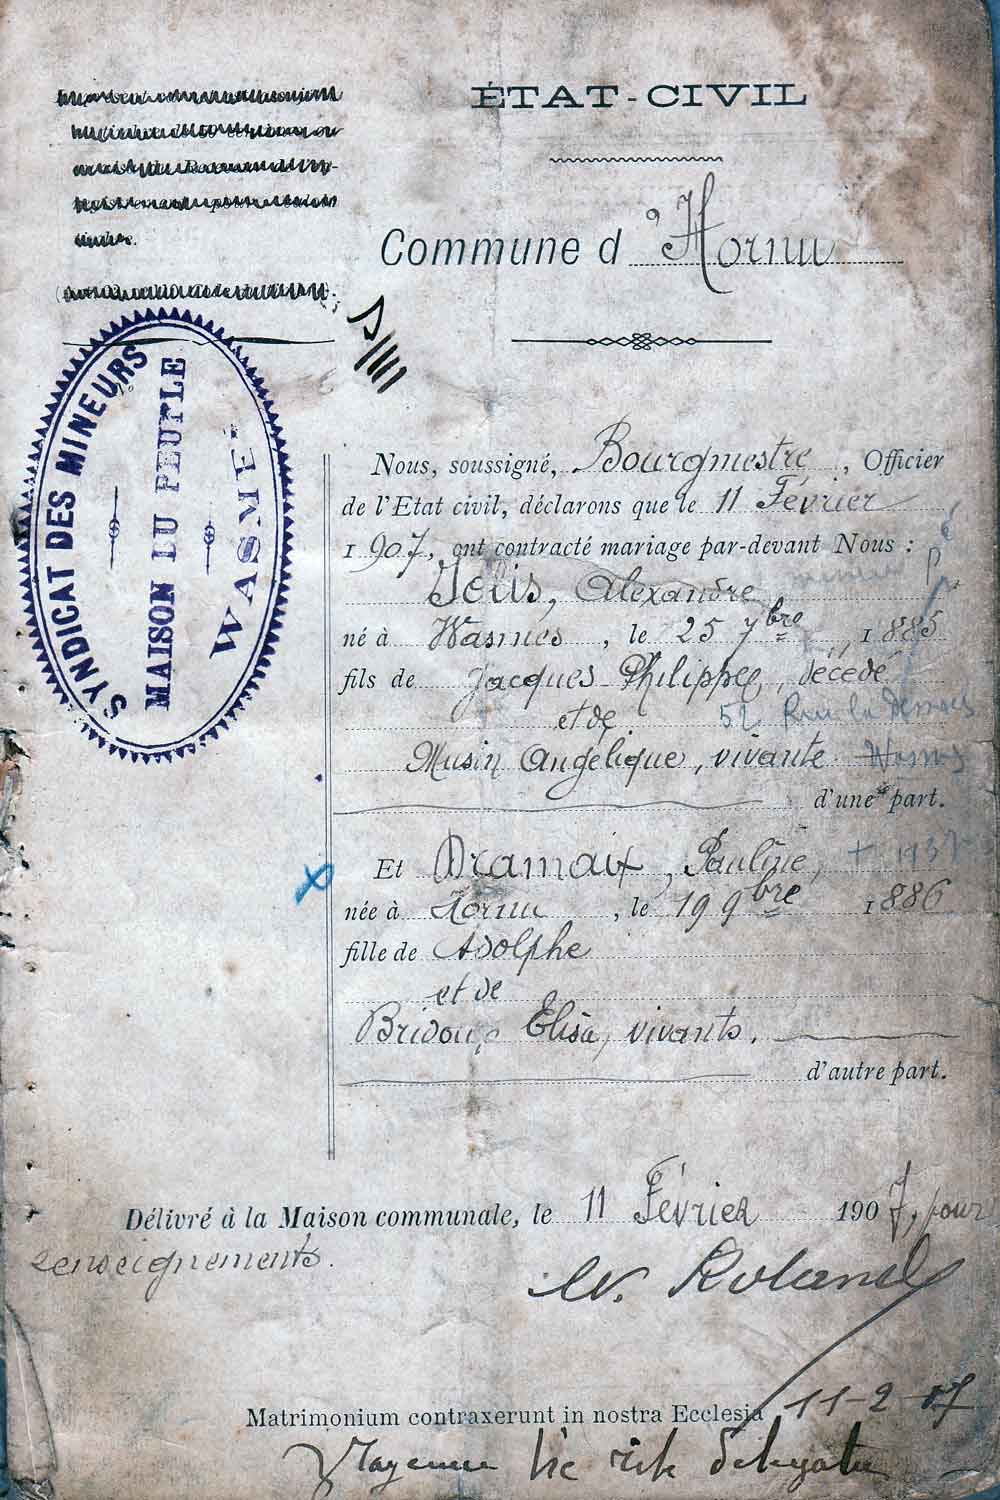 ÉTAT-CIVIL
Commune d'Hornu
SYNDICAT DES MINEURS
MAISON DU PEUPLE
WASMES
Nous, soussigné, Bourgmestre, Officier
de l'Etat civil, déclarons que le 11 Février
1907, ont contracté mariage par-devant Nous :
Alexandre
né à Wasmes, le 25 7bre 1885
fils de Jacques Philippe, décédé
et de
52 Rue
Musin Angélique, vivante
d'une part.
Et Dramaix, Pauline,
née à Hornu, le 19 9bre 1886
fille de Adolphe
et de
Bridoux Elisa, vivants.
d'autre part.
Délivré à la Maison communale, le 11 Février 1907, pour
renseignements.
Roland
Matrimonium contraxerunt in nostra Ecclesia 11-2-07